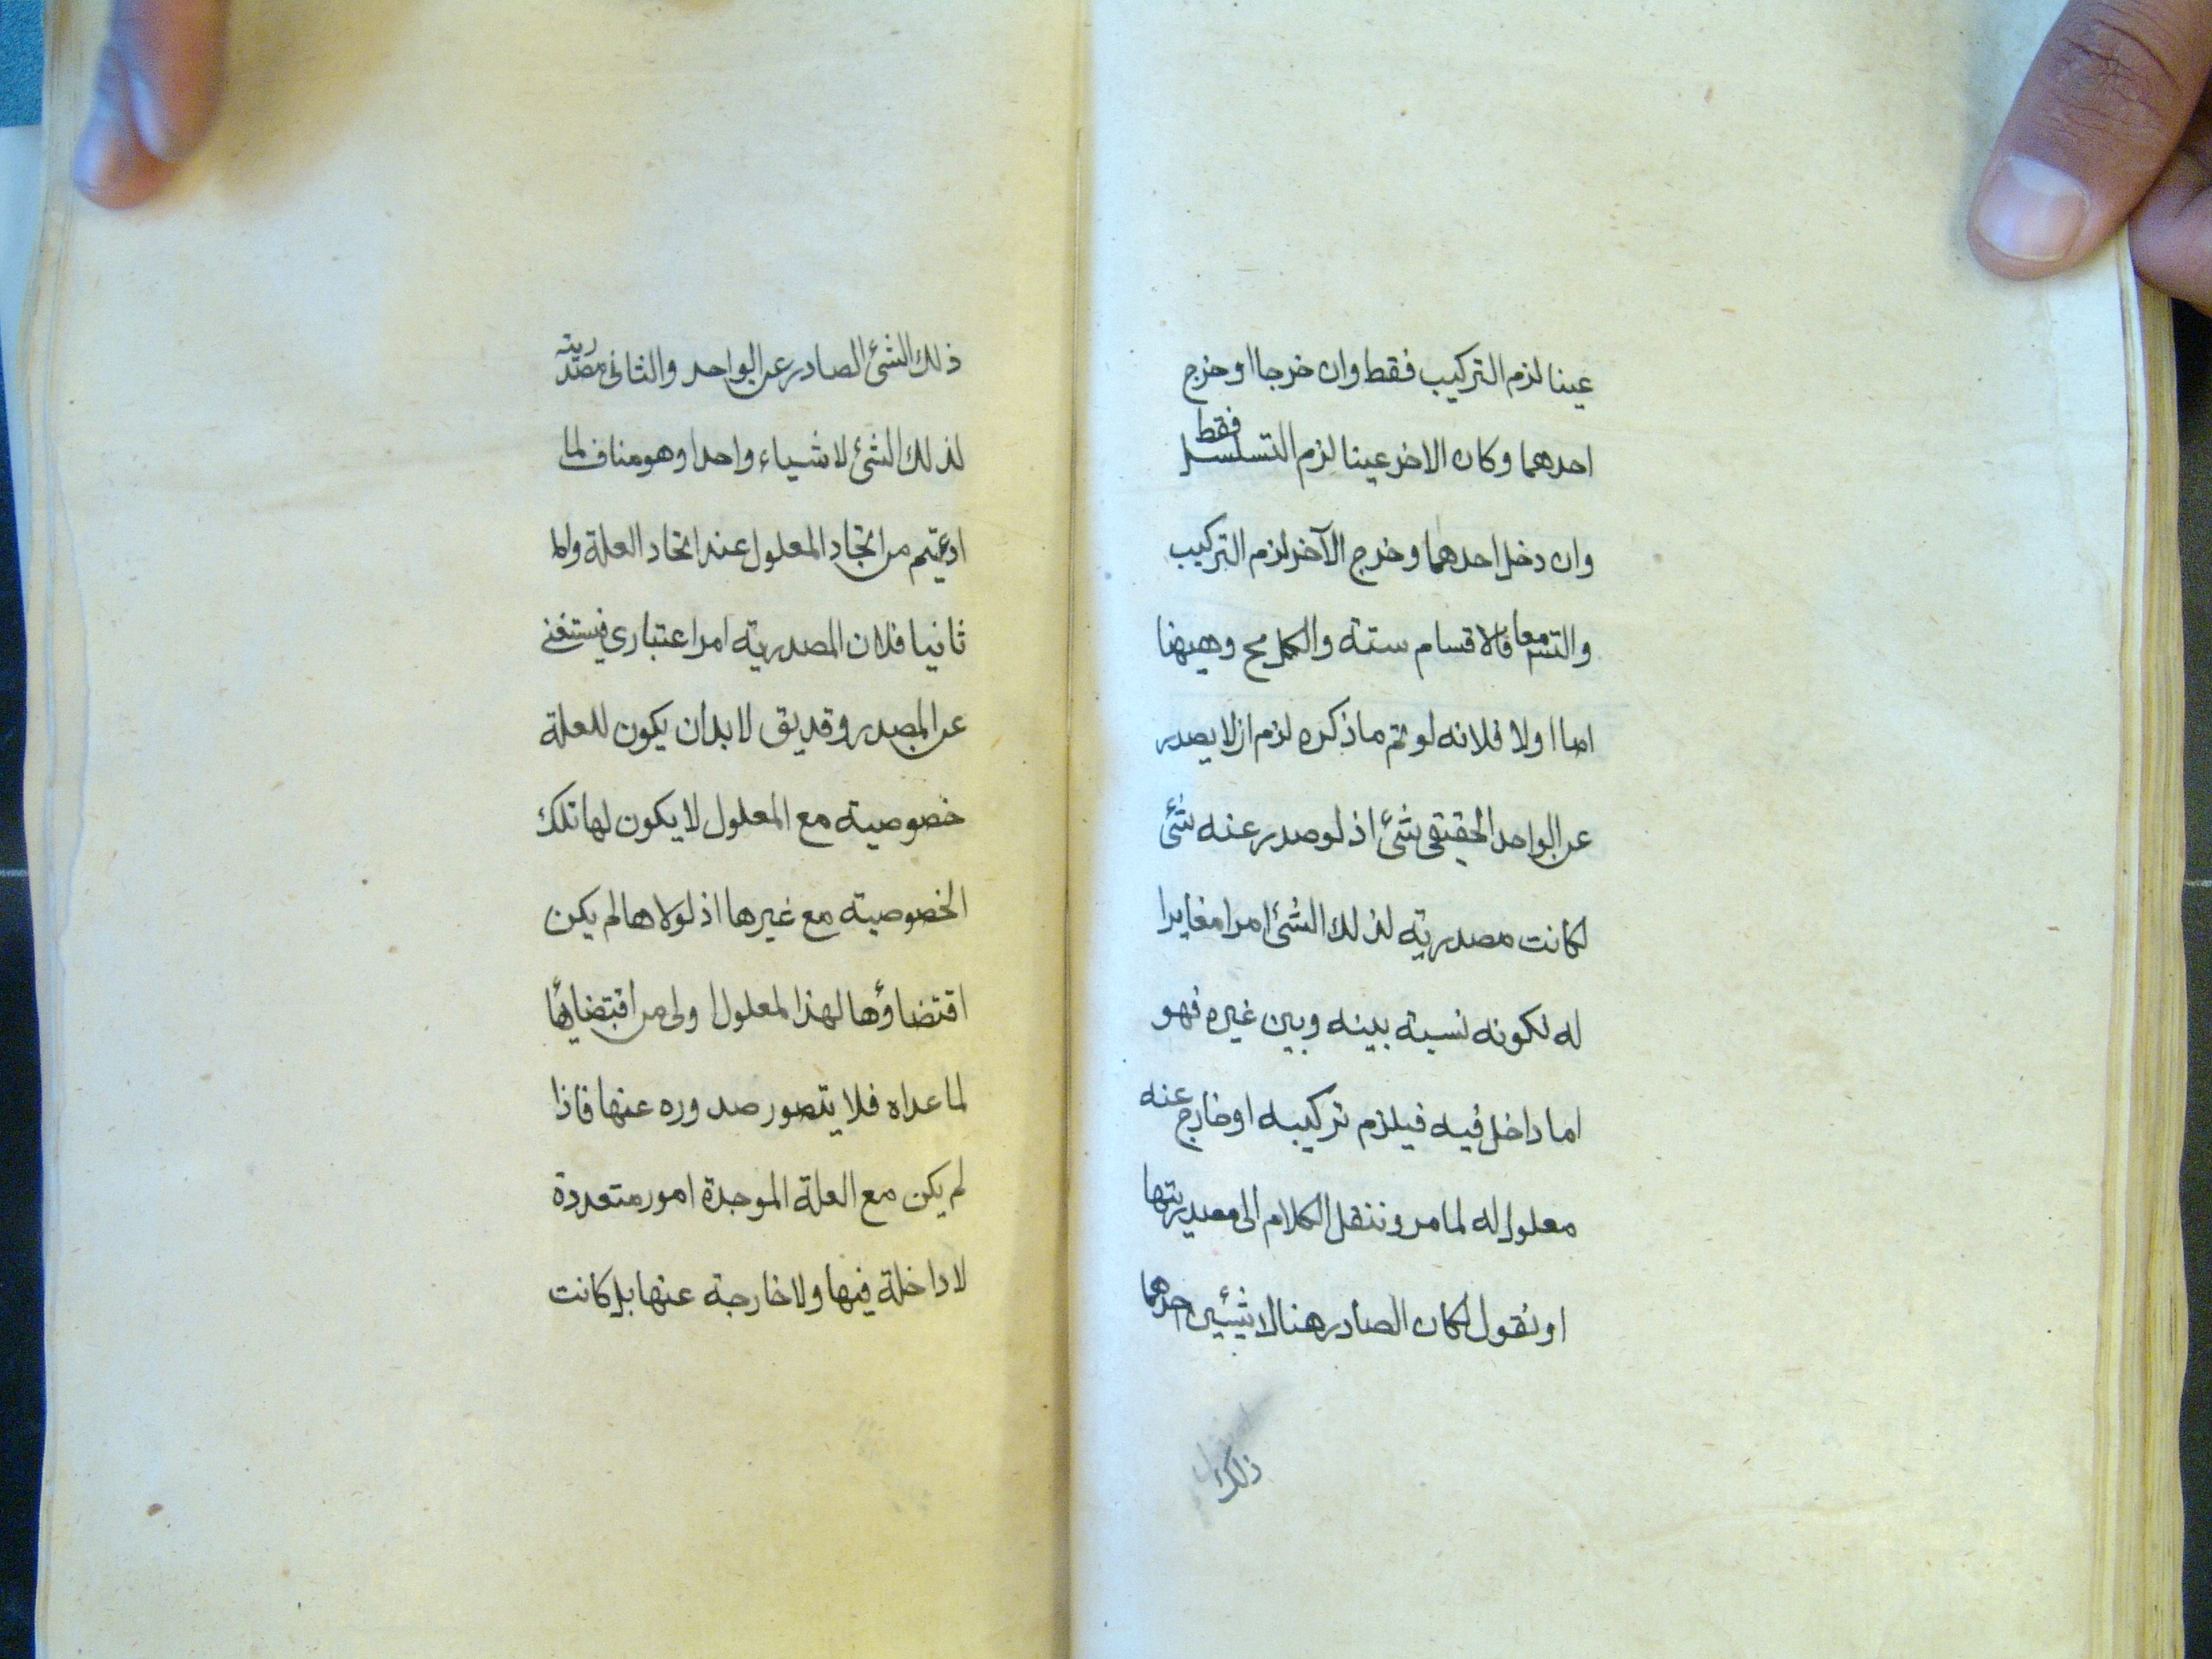 عينا لزم التركيب فقط وان خرجا او خرج
احدهما وكان الاخر عينا لزم التسلسل فقط
وان دخل احدهما وخرج الآخر لزم التركيب
والتسم معا فالاقسام ستة والكل مح وههنا
اما اولا فلانه لو تم ما ذكره لزم ان لا يصدر
عن الواحد الحقيقى شئ اذ لو صدر عنه شئ
لكانت مصدرية لذلك الشئ امرا مغايرا
له لكونه نسبة بينه وبين غيره فهو
اما داخل فيه فيلزم تركيبه او خارج عنه
معلول له لما مر وننقل الكلام الى مصدريتها
او نقول لكان الصادر هنالا شيئين احدهما
ذلك
ذلك الشئ الصادر عن الواحد والثانى مصدرية
لذلك الشئ لا شياء واحدا وهو مناف لما
ادعيتم من اتحاد المعلول عند اتحاد العلة واما
ثانيا فلان المصدرية امر اعتبارى فيستغنى
عن المصدر وقد يق لا بد ان يكون للعلة
خصوصية مع المعلول لا يكون لها تلك
الخصوصية مع غيرها اذ لولاها لم يكن
اقتضاؤها لهذا المعلول اولى من اقتضائها
لما عداه فلا يتصور صدوره عنها فاذا
لم يكن مع العلة الموجدة امور متعددة
لا داخلة فيها ولا خارجة عنها بل كانت